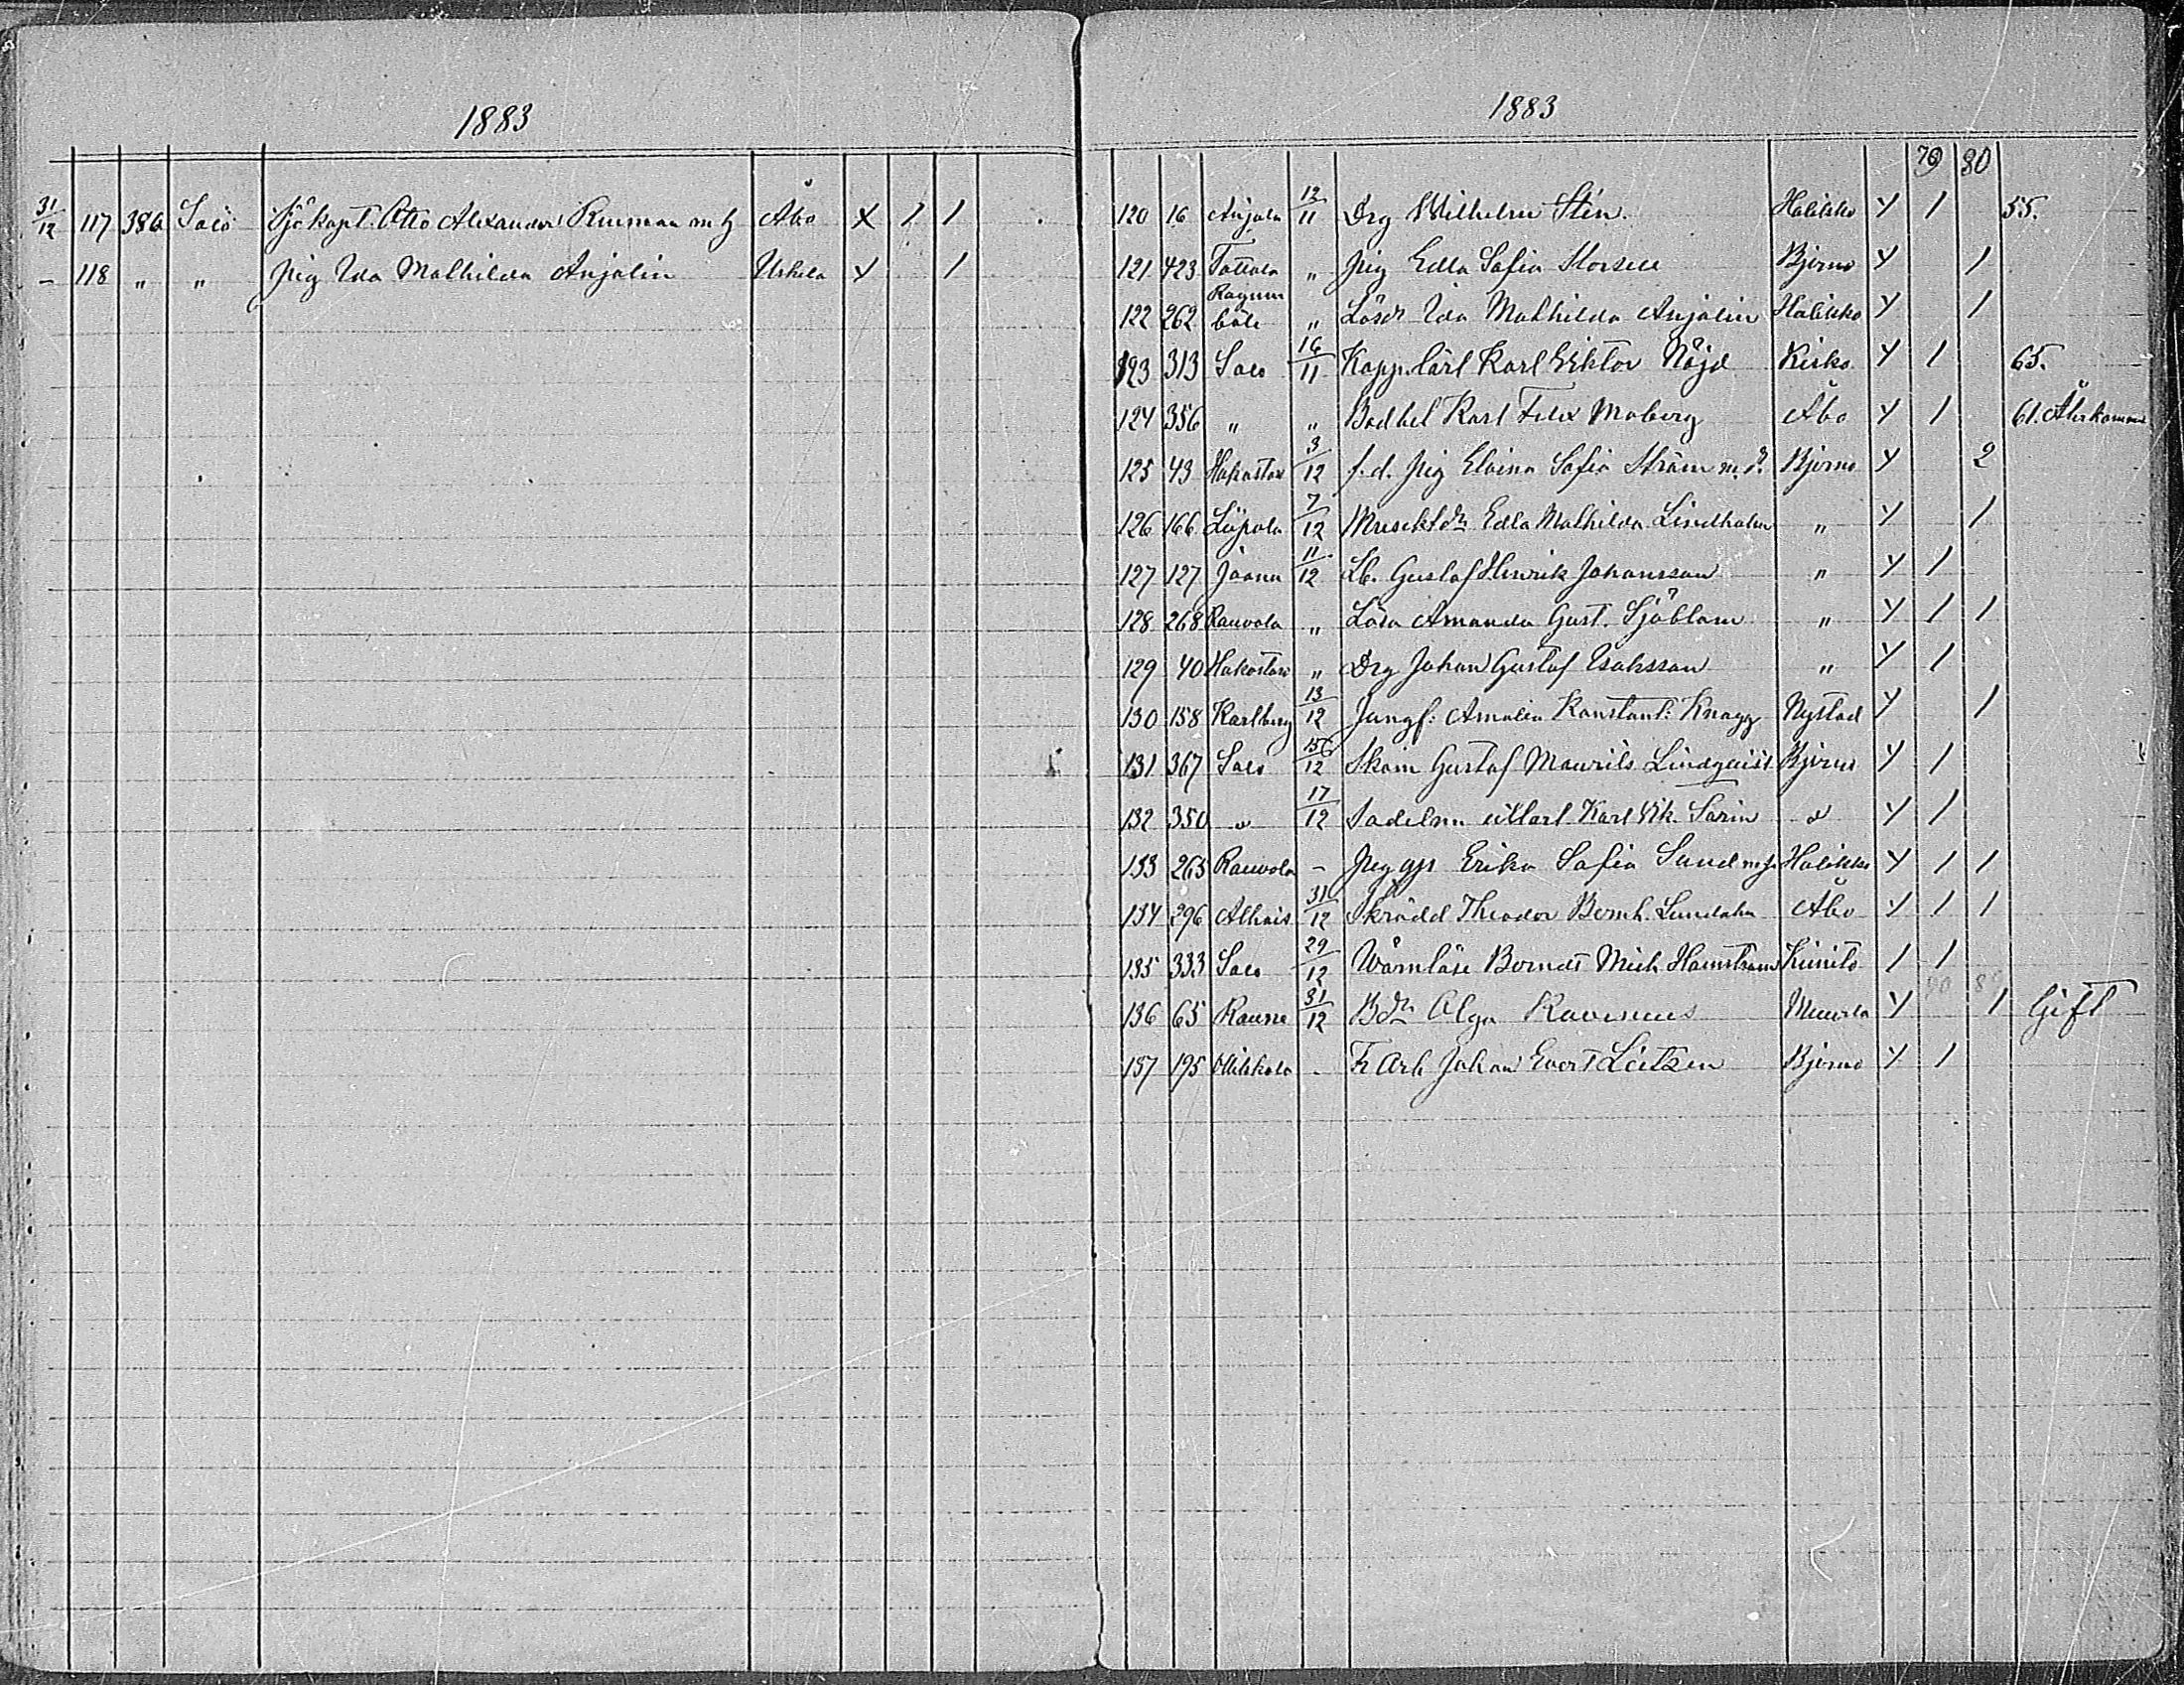 1883
31/12 117 386 Salo Sjökapt. Otto Alexander Ruuman m h Åbo X 1 1
– 118 " " Pig Ida Mathilda Anjalin Uskela X 1
1883
79 80
120 16 Anjala 12/11 Drg Wilhelm Stén. Halikko Y 1 55.
121 423 Tottola " Pig Edla Sofia Bjerno Y 1
122 262 Ragunböle " Lösdr Ida Mathilda Anjalin Halikko Y 1
123 313 Salo 16/11 Kopp.lärl Karl Viktor Nöjd Kisko Y 1 65.
124 356 " " Bodbet Karl Felix Moberg Åbo Y 1 61. Återkommen
125 43 Hakastaro 3/12 f.d. Pig Elvina Sofia Ström m. d. Bjerno Y 2
126 166 Lüpola 7/12 Edla Mathilda Lindholm " Y 1
127 127 Joanu 11/12 Lb. Gustaf Henrik Johansson " Y 1
128 268 Rauvola " Lösa Amanda Gust. Sjöblom " Y 1 1
129 40 Hakostaro " Drg Johan Gustaf Isaksson " Y 1
130 158 Karlberg 13/12 Jungf: Amalia Konstant: Knagg Nystad Y 1
131 367 Salo 15/12 Skom Gustaf Maurits Lindqvist Bjerno Y 1
132 350 " 17/12 Sadelm Karl Vik. Sarin " Y 1
133 265 Rauvola – Pig gps Erika Sofia Sund m. f. Halikko Y 1 1
134 296 Alhais 31/12 Skrädd Theodor Bernh. Lundahn Åbo Y 1 1
135 333 Salo 29/12 Berndt Mich Hamström Kimito 1 1
80 8
136 65 Raunne 31/12 Bdr Olga Ravenius Muurla Y 1 Gift
137 195 Ollikkala – Fr Arb Johan Evert Leitzen Bjerno Y 1